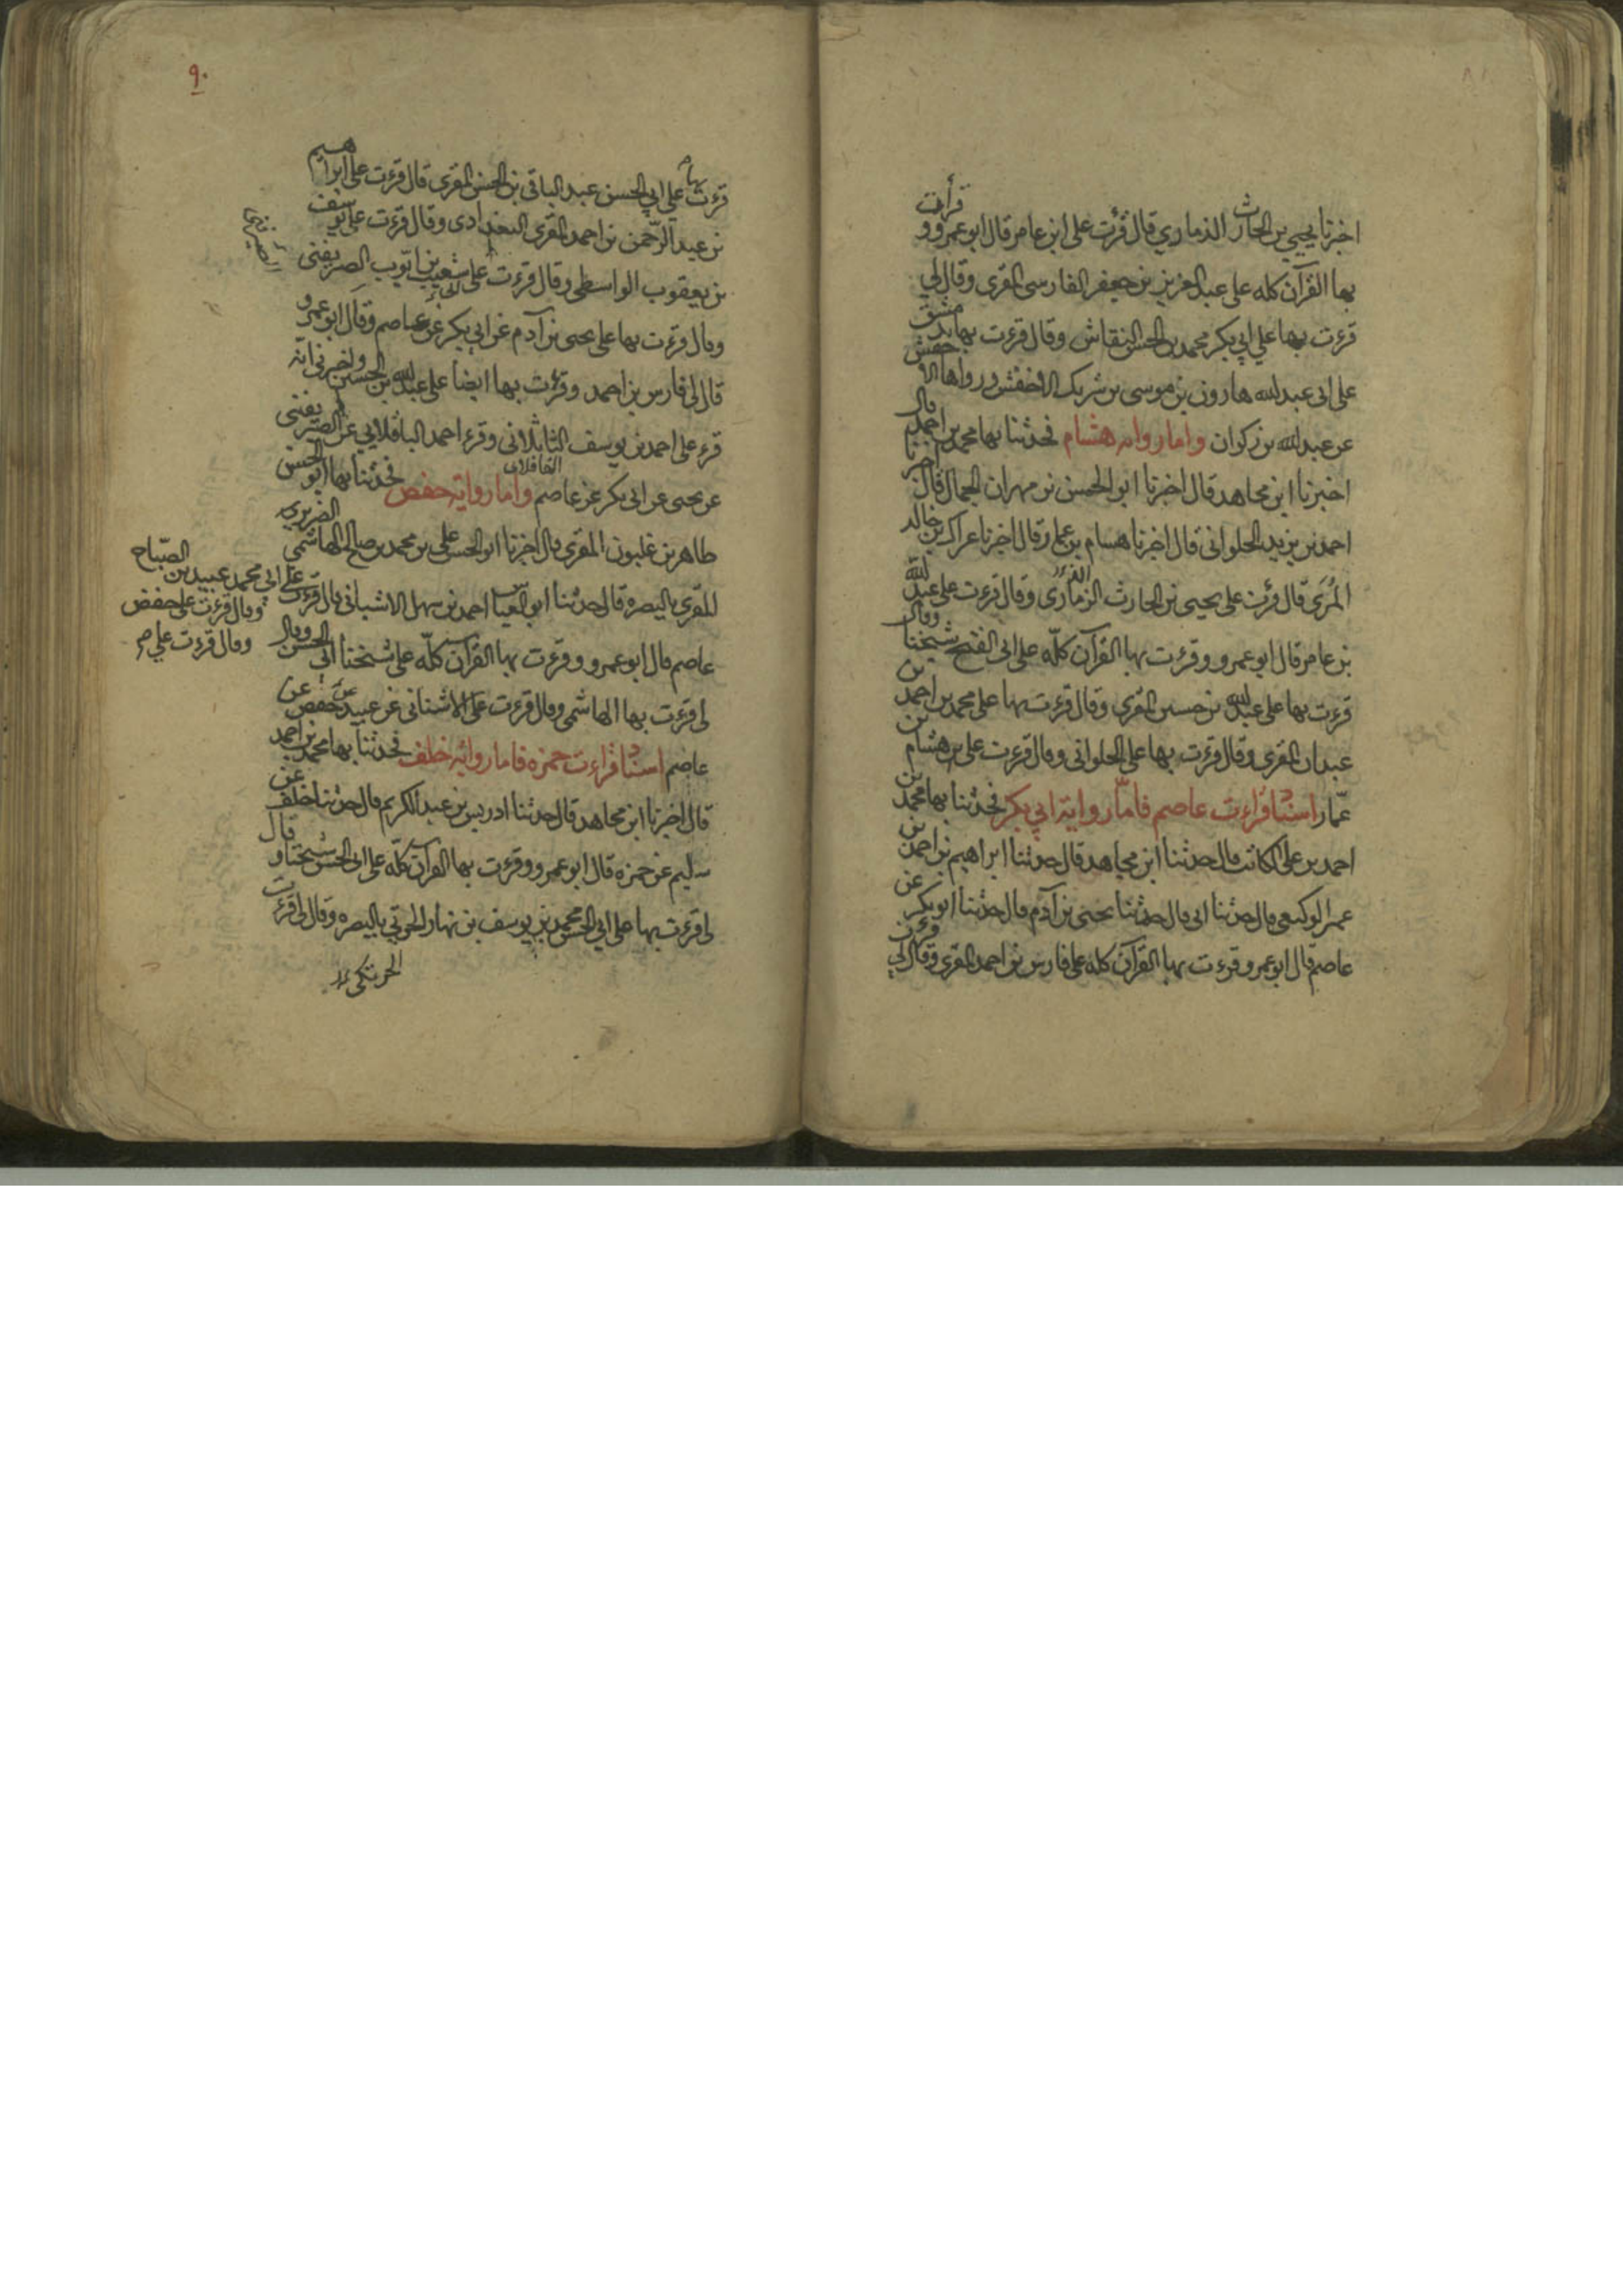 اخبرنا يحيى بن الحارث الذماري قال قرءت على ابن عامر قال ابو عمرو و قرأت
بها القرآن كله على عبد العزيز بن جعفر الفارسى المقرى وقال لي
قرءت بها على ابي بكر محمد بن الحسن النقاش وقال قرءت بها بدمشق
على ابى عبدالله هارون بن موسى بن شريك الاخفش ورواها الاخفش
عن عبدالله بن زكوان واما روايه هشام فحدثنا بها محمد بن احمد قال
اخبرنا ابن مجاهد قال اخبرنا ابو الحسن بن مهران الجمال قال اخبرنا
احمد بن يزيد الحلوانى قال اخبرنا هشام بن عمار قال اخبرنا عراك بن خالد
المرى قال قرءت على يحيى بن الحارث الزمارى وقال قرءت على عبدالله
بن عامر قال ابو عمرو وقرءت بها القرآن كله على ابى الفتح شيخنا وقال
قرءت بها على عبدالله بن حسين المقرى وقال قرءت بها على محمد بن احمد بن
عبدان المقرى وقال قرءت بها على الحلوانى وقال قرءت على هشام بن
عمار اسناد قراءت عاصم فاما رواية ابي بكر فحدثنا بها محمد بن
احمد بن على الكاتب قال حدثنا ابن مجاهد قال حدثنا ابراهيم بن احمد بن
عمر الوكيعى قال حدثنا ابى قال حدثنا يحيى بن آدم قال حدثنا ابو بكر عن
عاصم قال ابو عمرو قرءت بها القرآن كله على فارس بن احمد المقرى وقال لي قرءت
٩٠
قرءت بها على ابي الحسن عبد الباقى بن الحسن المقرى قال قرءت على ابراهيم
بن عبد الرحمن بن احمد المقرى البغدادى وقال قرءت على يوسف
بن يعقوب الواسطى وقال قرءت على شعيب بن ايوب الصريفنى
وقال قرءت بها على يحيى بن آدم عن ابى بكر عن عاصم وقال ابو عمرو
قال لى فارس بن احمد وقرءت بها ايضا على عبدالله بن الحسين واخبرنى انه
قرء على احمد بن يوسف وقرء احمد الباقلايى عن الصريفنى
القافلانى
عن يحيى عن ابى بكر عن عاصم واما رواية حفص فحدثنا بها ابو الحسن
طاهر بن غلبون المقرى قال اخبرنا ابو الحسن على بن محمد بن صالح الهاشمى الضرير
المقرى بالبصره قال حدثنا ابو العباس احمد بن سهل الاشنانى قال قرءت
على ابي محمد عبيد بن الصباح
وقال قرءت على حفص
وقال قرءت على م
عاصم قال ابو عمرو وقرءت بها القرآن كله على شيخنا ابى الحسن وقال
لى قرءت بها الهاشمى وقال قرءت على الاشنانى عن عبيد عن حفص عن
عاصم اسناد قراءت حمزه فاما روايه خلف فحدثنا بها محمد بن احمد
قال اخبرنا ابن مجاهد قال حدثنا ادريس بن عبد الكريم قال حدثنا خلف عن
سليم عن حمزه قال ابو عمرو وقرءت بها القرآن كله على ابى الحسن شيخنا و قال
لى قرءت بها على ابي الحسن محمد بن يوسف بن نهار الحرتي بالبصره وقال لى قرءت